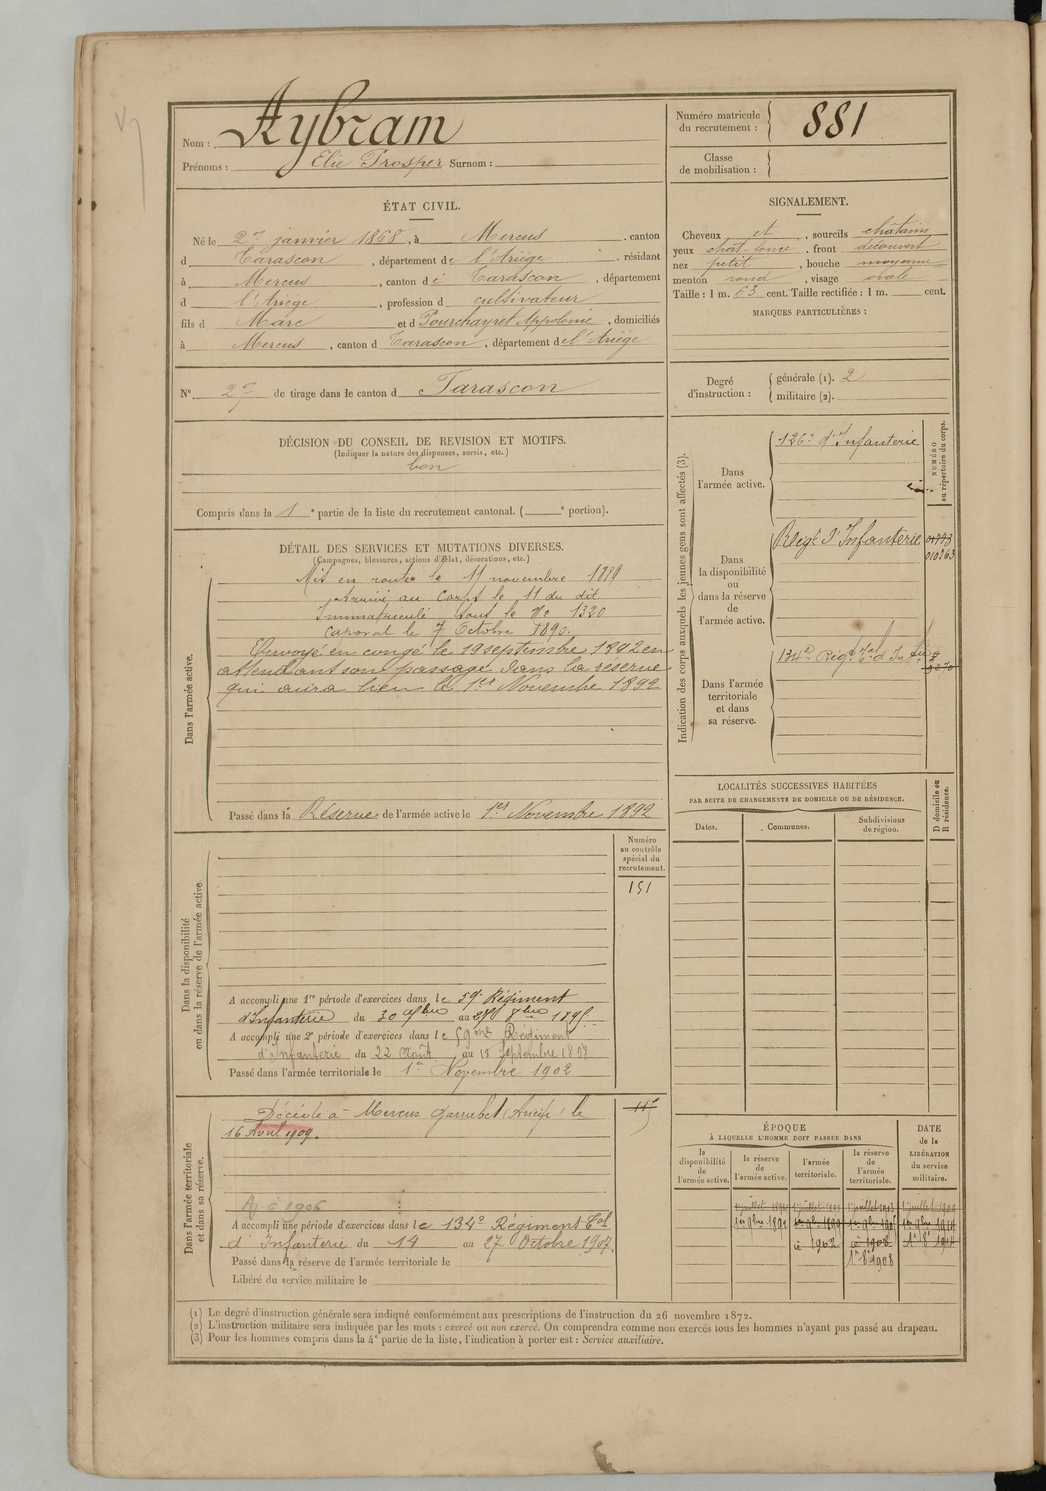 Nom : Aybram
Prénoms : Elie Prosper Surnom :
Numéro matricule du recrutement : 881
Classe de mobilisation :
ÉTAT CIVIL.
Né le 27 janvier 1868, à Mercus . canton
d Tarascon , département de l'Ariège . résidant
à Mercus , canton de Tarascon , département
d l'Ariège , profession d cultivateur
fils d Marc et d Pourchayret Appolonie , domiciliés
à Mercus , canton d Tarascon , département de l'Ariège
SIGNALEMENT.
Cheveux et , sourcils chatains
yeux chat. fonce , front découvert
nez petit , bouche moyenne
menton rond , visage ovale
Taille : 1 m. 63 cent. Taille rectifiée : 1 m. cent.
MARQUES PARTICULIÈRES :
N° 27 de tirage dans le canton d Tarascon
Degré d'instruction :
générale (1). 2
militaire (2).
DÉCISION DU CONSEIL DE REVISION ET MOTIFS.
(Indiquer la nature des dispenses, sursis, etc.)
bon
Compris dans la 1e partie de la liste du recrutement cantonal. ( e portion).
DÉTAIL DES SERVICES ET MUTATIONS DIVERSES.
(Campagnes, blessures, actions d'éclat, décorations, etc.)
Dans l'armée active.
Mis en route le 11 novembre 1889
Arrivé au Corps le 11 du dit
Immatriculé sous le No 1320
Caporal le 7 Octobre 1890.
Envoyé en congé le 19 septembre 1892 en
attendant son passage dans la réserve
qui aura lieu le 1er Novembre 1892
Passé dans la Réserve de l'armée active le 1er Novembre 1892
Indication des corps auxquels les jeunes gens sont affectés (3).
NUMÉRO au répertoire du corps.
Dans l'armée active.
126e d'Infanterie
Dans la disponibilité ou dans la réserve de l'armée active.
Régt d'Infanterie
Dans l'armée territoriale et dans sa réserve.
134e Régt Tal d'Infie
LOCALITÉS SUCCESSIVES HABITÉES
PAR SUITE DE CHANGEMENTS DE DOMICILE OU DE RÉSIDENCE.
Dates.
Communes.
Subdivisions de région.
D domicile ou R résidence.
Dans la disponibilité ou dans la réserve de l'armée active
Numéro au contrôle spécial du recrutement.
151
A accompli une 1re période d'exercices dans le 59e Régiment
d'Infanterie du 30 7bre au 8bre 1895
A accompli une 2e période d'exercices dans le 59me Régiment
d'Infanterie du 22 Août au 18 Septembre 1898
Passé dans l'armée territoriale le 1er Novembre 1902
Dans l'armée territoriale et dans sa réserve.
Décédé à Mercus Garrabet (Ariège) le
16 Avril 1909.
Aj é 1906
A accompli une période d'exercices dans le 134e Régiment Tal
d' Infanterie du 14 au 27 Octobre 1907.
Passé dans la réserve de l'armée territoriale le
Libéré du service militaire le
ÉPOQUE
À LAQUELLE L'HOMME DOIT PASSER DANS
la disponibilité de l'armée active.
la réserve de l'armée active.
l'armée territoriale.
la réserve de l'armée territoriale.
DATE de la LIBÉRATION du service militaire.
1er 9bre 1892
1902
1908
1914
(1) Le degré d'instruction générale sera indiqué conformément aux prescriptions de l'instruction du 26 novembre 1872.
(2) L'instruction militaire sera indiquée par les mots : exercé ou non exercé. On comprendra comme non exercés tous les hommes n'ayant pas passé au drapeau.
(3) Pour les hommes compris dans la 4e partie de la liste, l'indication à porter est : Service auxiliaire.